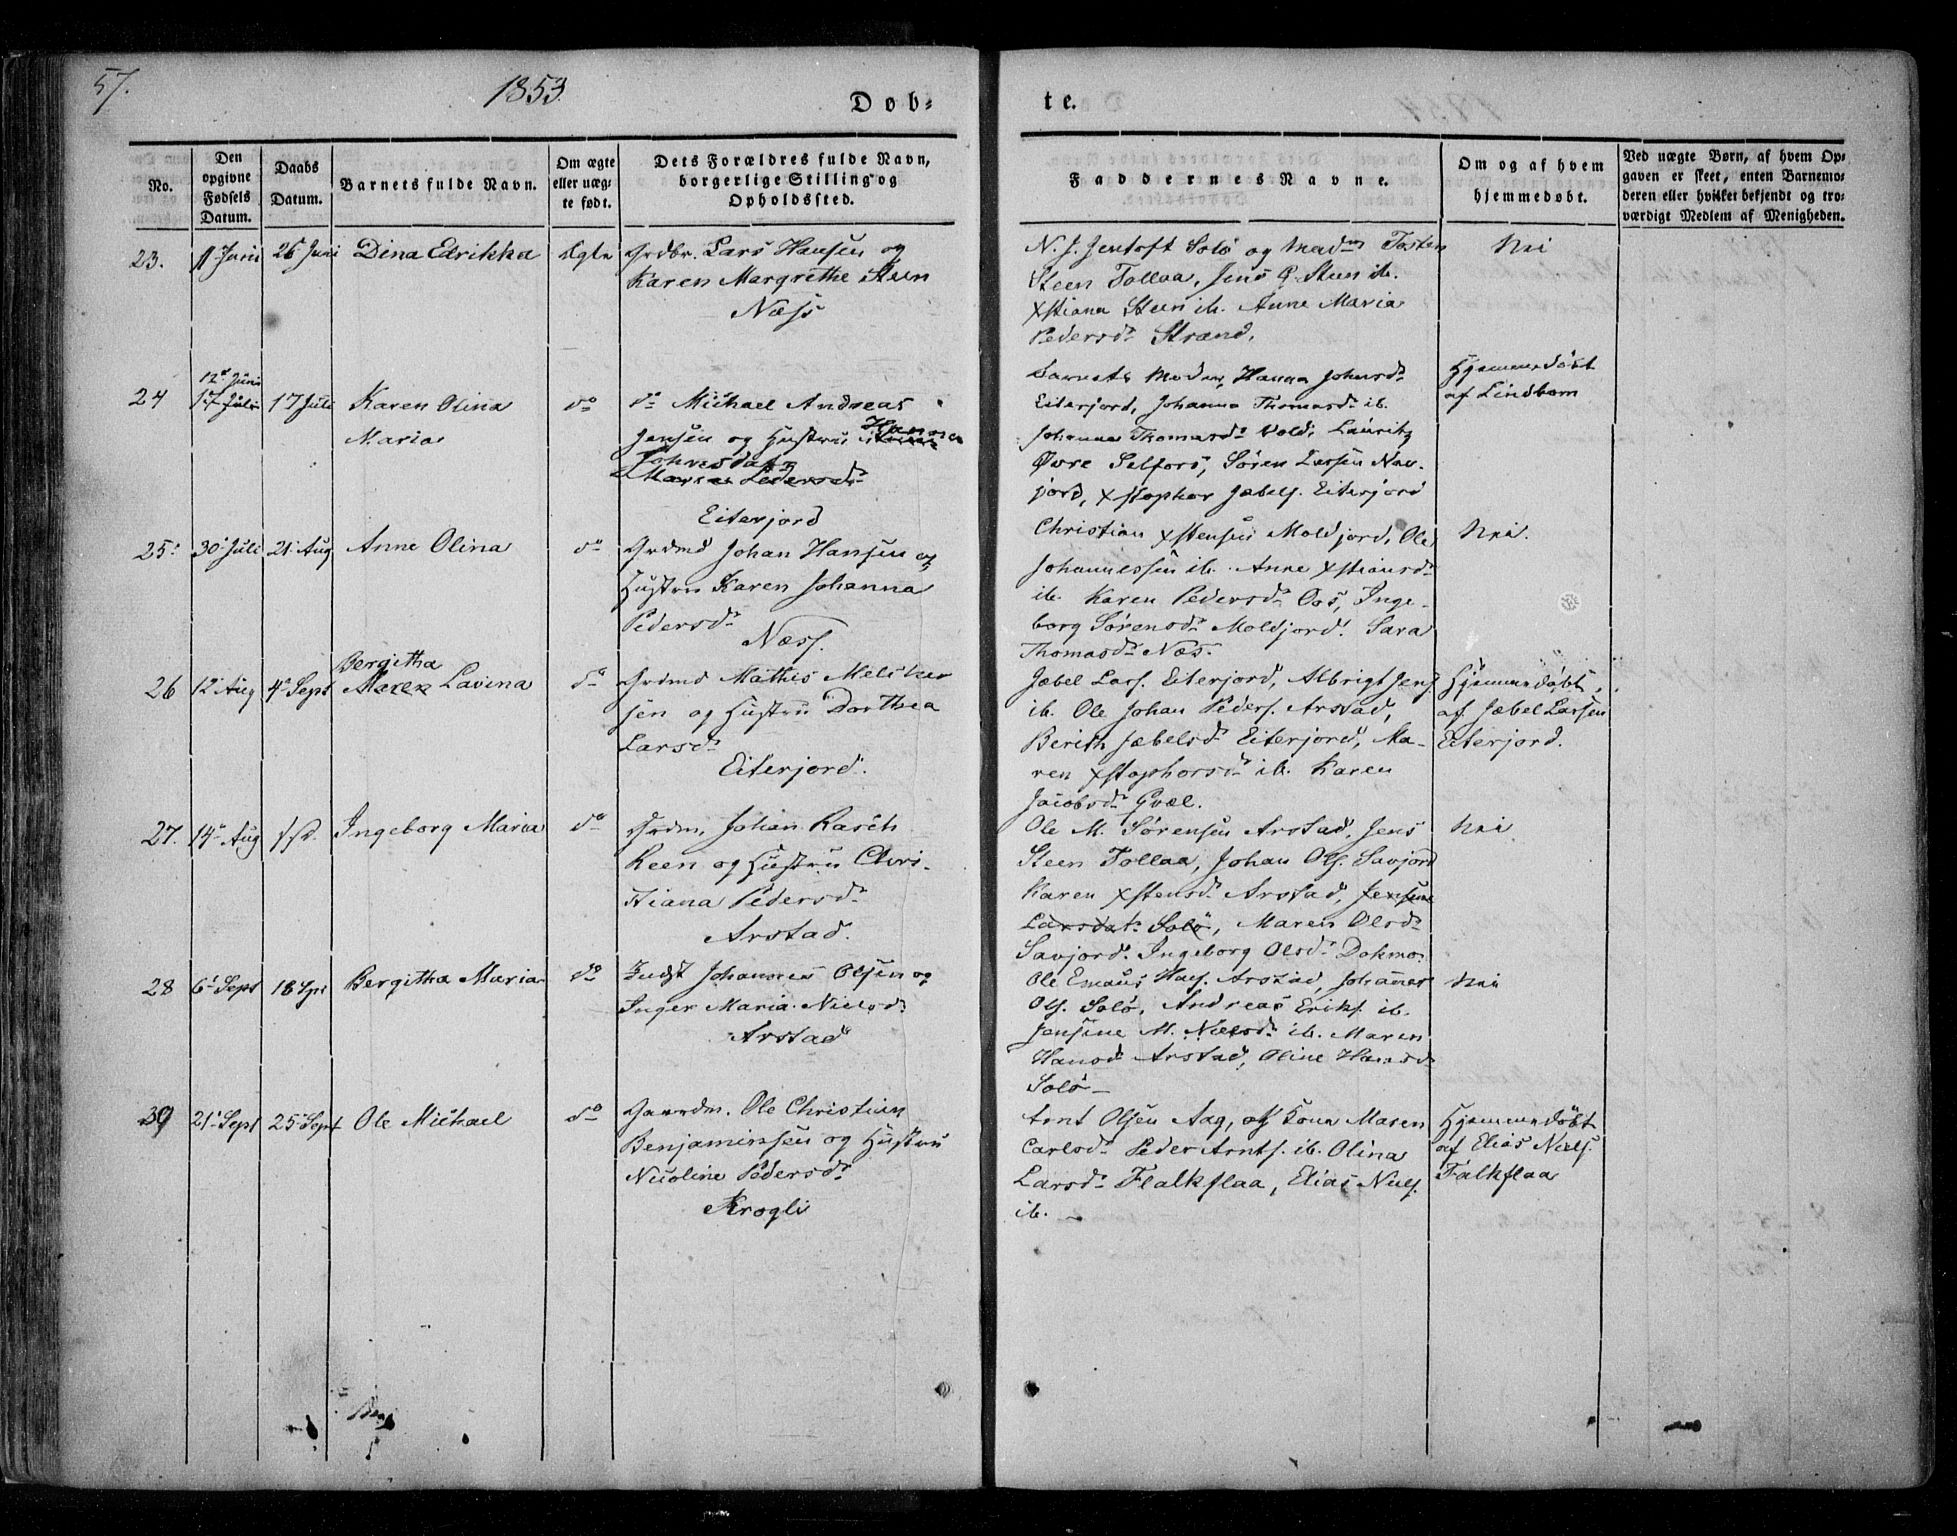 57.
1853
Døb-
te.
No.
Den opgivne Fødsels Datum.
Daabs Datum.
Barnets fulde Navn.
Om ægte eller uægte født.
Dets Forældres fulde Navn, borgerlige Stilling og Opholdssted.
Faddernes Navne.
Om og af hvem hjemmedøbt.
Ved uægte Børn, af hvem Opgaven er skeet, enten Barnemoderen eller hvilket bekjendt og troværdigt Medlem af Menigheden.
23.
1 Juni
26 Juni
Dina Edrikka
Ægte
Grdbr. Lars Hansen og
Karen Margrethe Steen
Næss
N. J. Jentoft Solö og Madm Torsten
Steen Tollaa, Jens G. Steen ib.
Xstiana Steen ib. Anne Maria
Pedersdr Strand.
Nei
24
12t Juni
17 Juli
17 Juli
Karen Olina
Maria
do
do Michael Andreas
Jensen og Hustru Hanna
Johnesdatr
Maria Pedersdr
Eiterjord
Barnets Moder, Hanna Johnsdr
Eiterjord, Johanna Thomasdr ib.
Johanna Thomasdr Vold, Lauritz
Øvre Selfors, Sören Larsen Nav-
jord, Xstophor Jæbels. Eiterjord
Hjemmedöbt
af Lindbom
25
30 Juli
21 Aug
Anne Olina
do
Grdmd Johan Hansen og
Hustru Karen Johanna
Pedersdr
Næss.
Christian Xstensen Moldjord, Ole
Johannessen ib. Anne Xstiansdr
ib. Karen Pedersdr Oos, Inge-
borg Sörensdr Moldjord. Sara
Thomasdr Næs.
Nei.
26
12 Aug
4 Sept
Bergitha
Maren Lavina
do
Grdmd Mathis Melcher
sen og Hustru Dorthea
Larsdr
Eiterjord.
Jæbel Lars. Eiterjord, Albrigt Jens.
ib. Ole Johan Peders. Arstad,
Berith Jæbelsdr Eiterjord, Ma-
ren Xstophorsdr ib. Karen
Jacobsdr Gvæl.
Hjemmedöbt
af Jæbel Larsen
Eiterjord.
27.
14 Aug
s. D.
Ingeborg Maria
do
Grdm. Johan Rasch
Reen og Hustru Chris-
tiana Pedersdr
Arstad.
Ole M. Sörensen Arstad, Jens
Steen Tollaa, Johan Ols. Savjord
Karen Xstensdr Arstad, Jensine
Larsdatr Solö, Maren Olsdr
Savjord. Ingeborg Olsdr Dokmo.
Nei
28
6 Sept
18 Spt
Bergitha Maria
do
Indst Johannes Olsen og
Inger Maria Nielsdr
Arstad
Ole Emaus Hans. Arstad, Johannes
Ols. Solö, Andreas Eriks. ib.
Jensine M. Nielsdr ib. Maren
Hansdr Arstad, Oline Hansdr
Solö
Nei
39
21 Sept
25 Sept
Ole Michael
do
Gaardm. Ole Christian
Benjaminsen og Hustru
Nicoline Pedersdr
Krogli
Arnt Olsen Aag, og Kone Maren
Carlsdr Peder Arnts. ib. Olina
Larsdr Flalkflaa, Elias Niels.
ib.
Hjemmedöbt
af Elias Niels.
Falkflaa